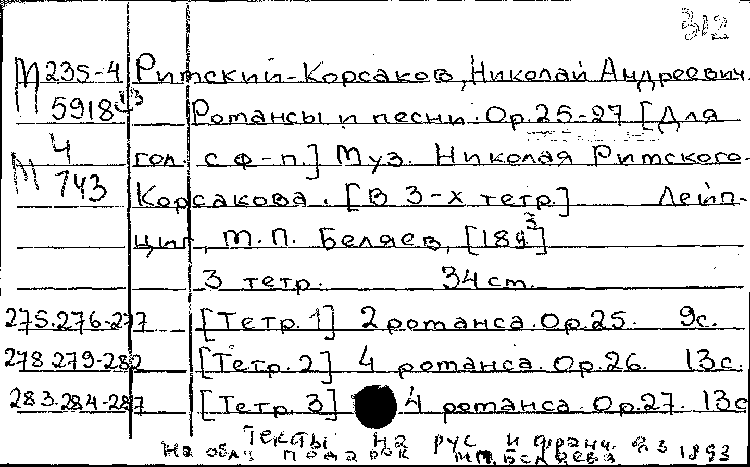 312
М 235-4 Римский-Корсаков, Николай Андреевич.
5918 Романсы и песни. Op. 25-27 [Для
4 гол. с ф-п.] Муз. Николая Римского-
М 743 Корсакова. [В 3-х тетр.] Лейп-
циг, М. П. Беляев, [1893]
3 тетр. 34 cm.
275.276-277 [Тетр. 1] 2 романса. Op. 25. 9с.
278.279-282 [Тетр. 2] 4 романса. Op. 26. 13с.
283.284-287 [Тетр. 3] 4 романса. Op. 27. 13с
Тексты на рус и франц.
На обл: подарок М.П. Беляева 1893